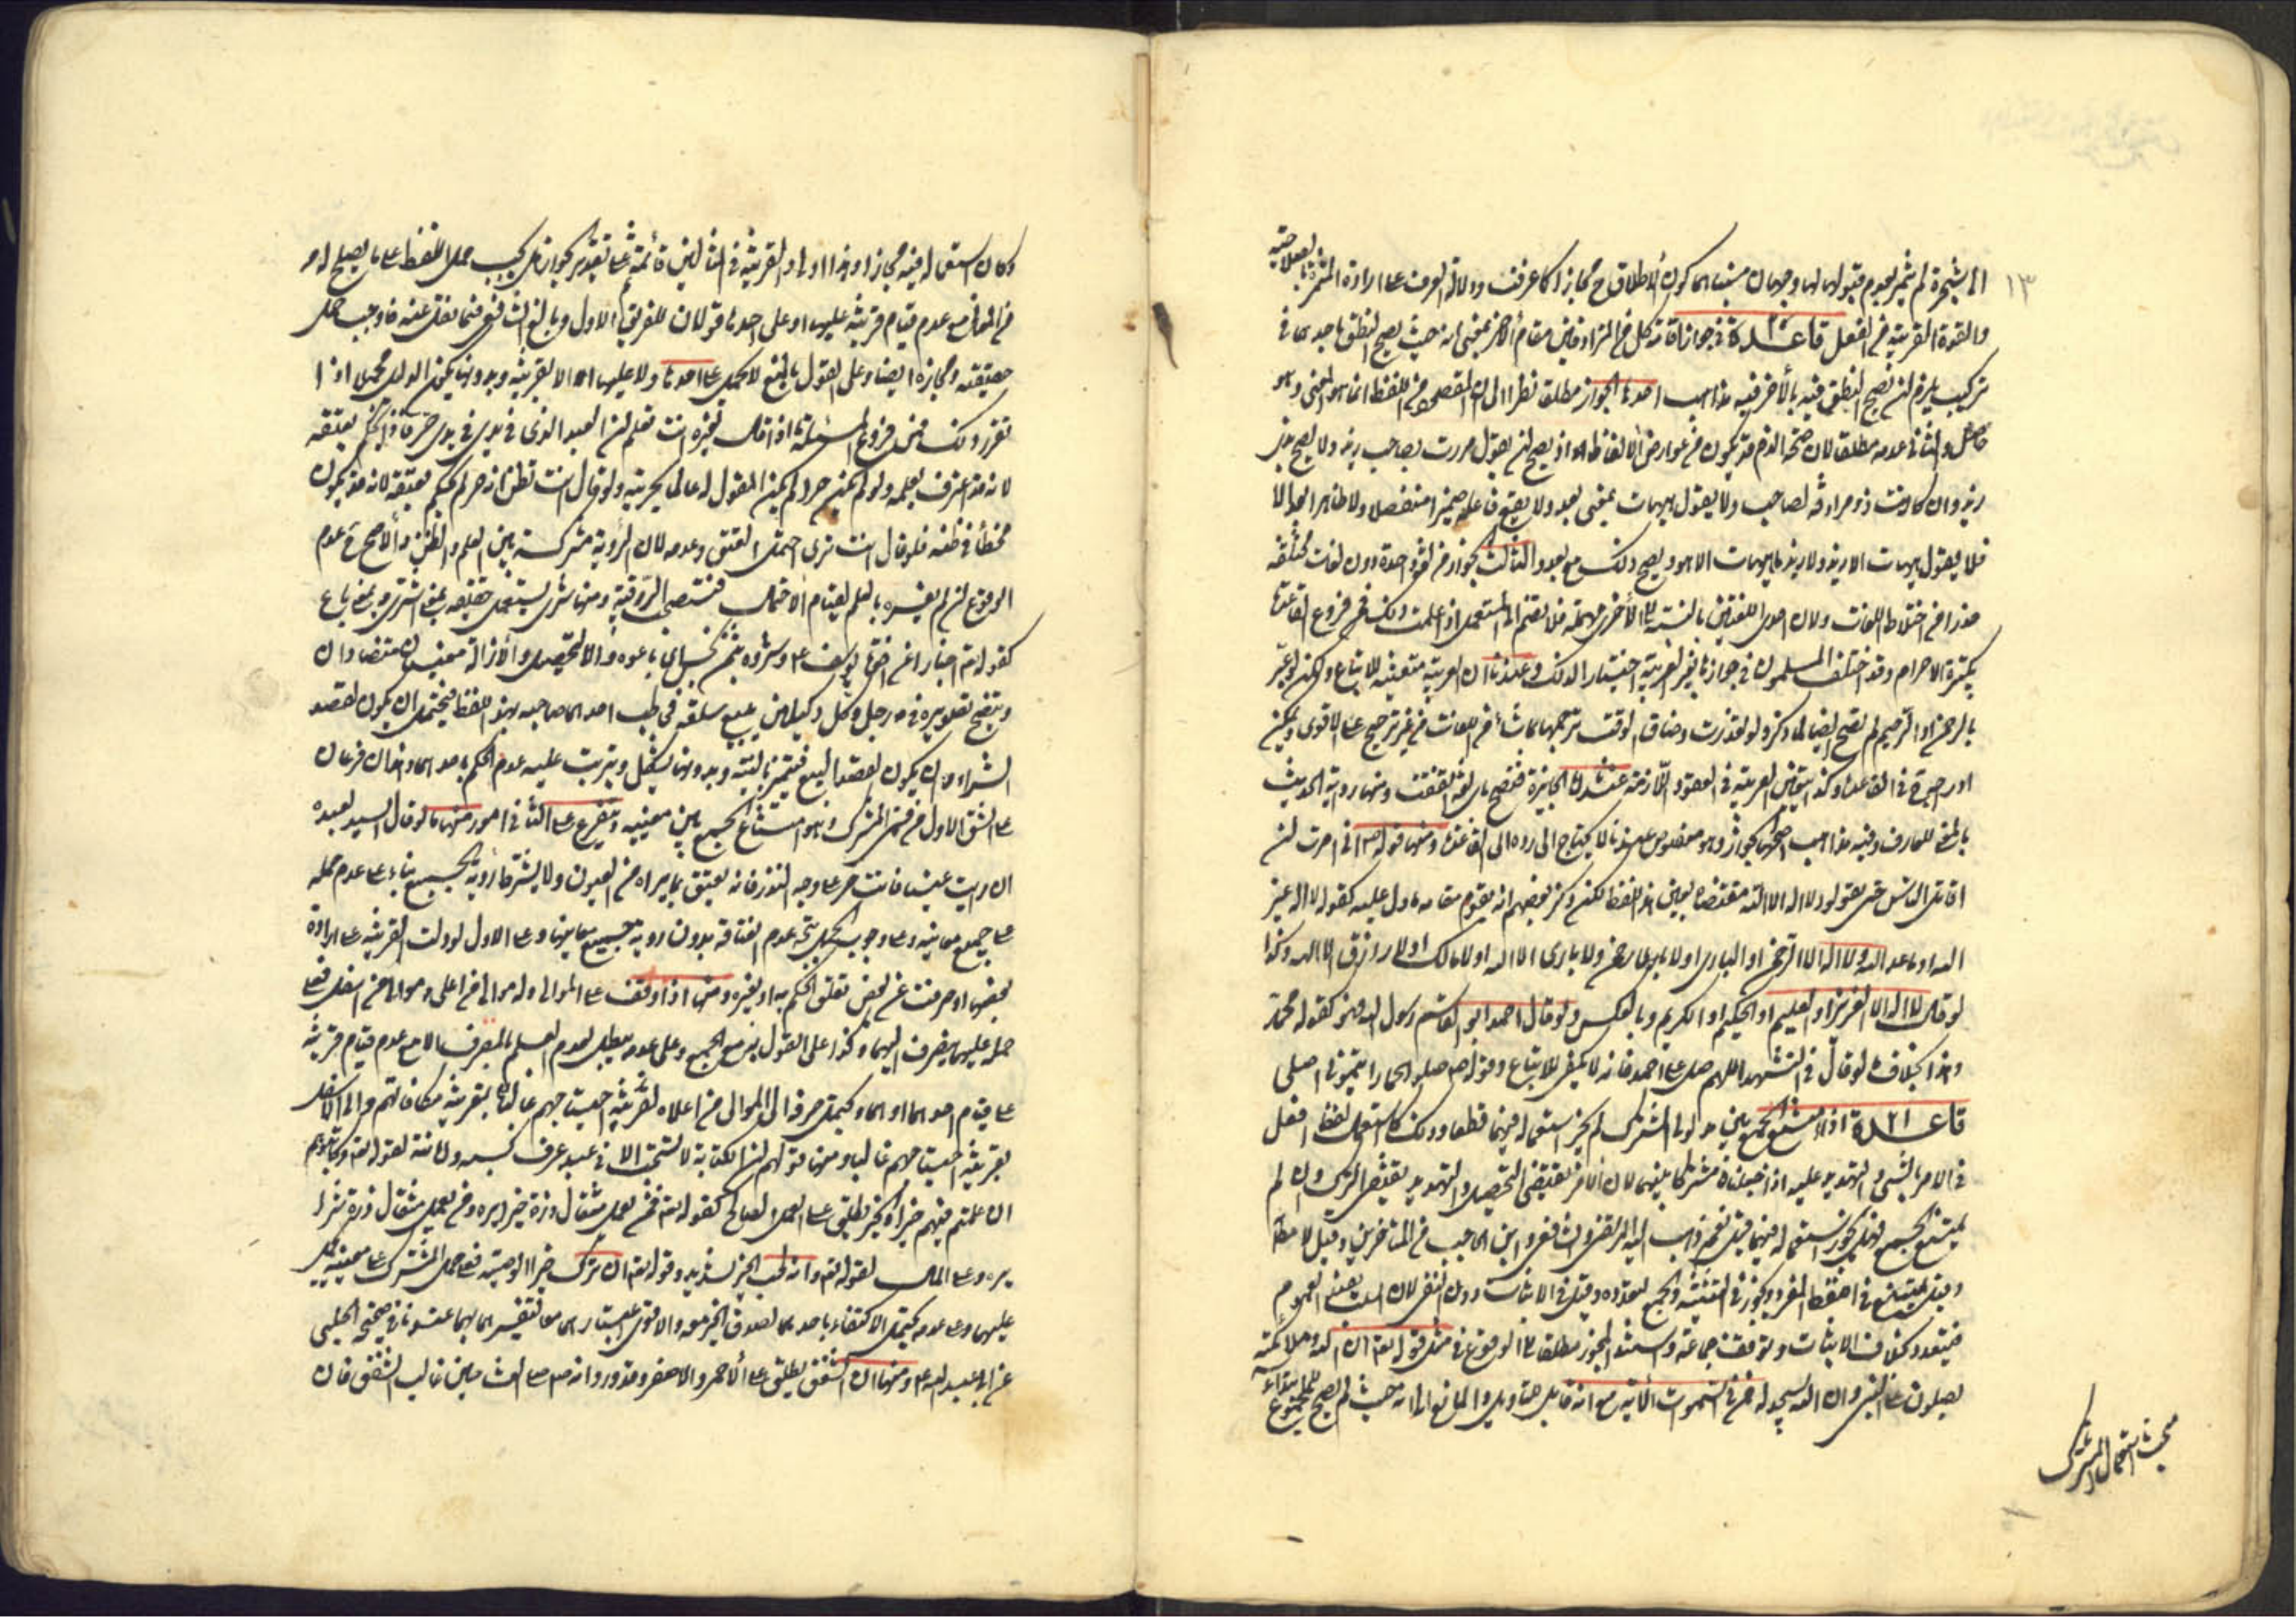 ١٣
الى شجرة لم تثمر لعدم قبولها لها وجهان مبنيان على كون الاطلاق ح مجازا كما عرفت ودلالة العرف على ارادة المثمرة بالصلاحية
والقوة القريبة من الفعل قاعدة ٢٠ في جواز اقامة كل من المترادفين مقام الآخر بمعنى انه حيث يصح النطق باحدهما في
تركيب يلزم ان يصح النطق فيه بالآخر فيه مذاهب احدها الجواز مطلقا نظرا الى ان المقصود من اللفظ انما هو المعنى وهو
حاصل والثاني عدمه مطلقا لان صحة الضم قد يكون من عوارض الالفاظ اذ يصح ان يقول مررت بصاحب زيد ولا يصح بذي
زيد وان كانت ذو مرادفة لصاحب ولا يقول هيهات بمعنى بعد ولا يقع فاعله ضميرا منفصلا ولا ظاهرا بعد الا
فلا يقول هيهات الا زيد ولا زيد ما هيهات الا هو ويصح ذلك مع بعد والثالث يجوز من لغة واحدة دون لغات مختلفة
حذرا من اختلاط اللغات ولان احدى اللغتين بالنسبة الى الاخرى مهملة فلا يضم الى المستعمل اذا علمت ذلك فمن فروع القاعدة
تكبيرة الاحرام وقد اختلف المسلمون في جوازها بغير العربية اختيارا لذلك وعندنا ان العربية متعينة للاتباع ولكن لو عبر
بالرحمن او الرحيم لم تصح ايضا لما ذكر ولو تعذرت وضاق الوقت ترجمها بما شاء من اللغات من غير ترجيح على الاقوى ويمكن
ادراجه في القاعدة وكذا يتعين العربية في العقود اللازمة عندنا دون الجايزة فتصح باي لغة اتفقت ومنها رواية الحديث
بالمعنى للعارف وفيه مذاهب اصحها الجواز وهو منصوص عندنا لا يحتاج الى رده الى القاعدة ومنها قوله ص اني امرت ان
اقاتل الناس حتى يقولوا لا اله الا الله مقتضاه تعيين هذا اللفظ لكن ذكر بعضهم انه يقوم مقامه ما دل عليه كقوله لا اله غير
الله او ما عدا الله ولا اله الا الرحمن او الباري او لا رحمن ولا باري الا الله او لا مالك او لا رازق الا الله وكذا
لو قال لا اله الا العزيز او العليم او الحكيم او الكريم وبالعكس ولو قال احمد ابو القاسم رسول الله فهو كقوله محمد
وهذا بخلاف ما لو قال في التشهد اللهم صل على احمد فانه لا يكفي للاتباع وقوله ص صلوا كما رايتموني اصلي
قاعدة ٢١ اذا امتنع الجمع بين مدلولي المشترك لم يجز استعماله فيهما قطعا وذلك كاستعمال لفظ افعل
في الامر بالشيء والتهديد عليه اذا جعلناه مشتركا بينهما لان الامر يقتضي التحصيل والتهديد يقتضي الترك وان لم
يمتنع الجمع فهل يجوز استعماله فيهما قيل نعم ذهب اليه المرتضى والشافعي وابن الحاجب من المتأخرين وقيل لا مطلقا
وقيل يمتنع في اللفظ المفرد ويجوز في التثنية والجمع لتعدده وقيل في الاثبات دون النفي لان النفي العموم
فيتعدد بخلاف الاثبات وتوقف جماعة واستند المجوز مطلقا الى الوقوع في مثل قوله تعالى ان الله وملائكته
يصلون على النبي وان الله يسجد له من في السموات الآية مع انه قابل للتاويل والمانع الى انه حيث لم يصح المجموع
مبحث استعمال المشترك
وكان استعماله فيه مجازا وهذا اولى والقرينة في المثالين قائمة على تقدير الجواز هل يجب حمل اللفظ على ما يصلح له
من المعاني مع عدم قيام قرينة عليها او على احدها قولان للفريق الاول وبالغ الشافعي فيما نقل عنه فاوجب حمل
حقيقته ومجازه ايضا وعلى القول بالمنع لا يحمل على احدها ولا عليها الا بقرينة وبدونها يكون الدليل مجملا اذا
تقرر ذلك فمن فروع المسئلة ما اذا قال لغيره انت تعلم ان العبد الذي في يدي حر فانا نحكم بعتقه
لانه قد اعترف بعلمه ولو لم يكن حرا لم يكن المقول له عالما بحريته ولو قال انت تظن انه حر لم يحكم بعتقه لانه قد يكون
مخطئا في ظنه فلو قال انت ترى احتمل العتق وعدمه لان الرؤية مشتركة بين العلم والظن والاصح عدم
الوقوع ان لم يفسره بالعلم لقيام الاحتمال فتستصحب الرقية ومنها شرى يستعمل حقيقة بمعنى اشترى وبمعنى باع
كقوله تعالى اخبارا عن اخوة يوسف ع وشروه بثمن بخس اي باعوه والتحصيل والازالة معنيان متضادان
ويتضح تصويره في رجل وكل وكيلين في بيع سلعة فخاطب احدهما صاحبه بهذا اللفظ فيحتمل ان يكون لقصد
الشراء وان يكون لقصد البيع فيتميز بالنية وبدونها يشكل ويترتب عليه عدم الحكم باحدهما وهذان فرعان
على الشق الاول من قسمي المشترك وهو امتناع الجمع بين معنييه ويتفرع على الثاني امور منها ما لو قال السيد لعبده
ان رايت عينا فانت حر على وجه النذر فانه يعتق بما يراه من العيون ولا يشترط رؤية الجميع بناء على عدم حمله
على جميع معانيه وعلى وجوب الحمل يتجه عدم العتاقة بدون رؤية جميع معانيها وعلى الاول لو دلت القرينة على ارادة
بعضها او صرفت عن بعض تعلق الحكم به او بغيره ومنها اذا وقف على الموالي وله موالي من اعلى وموالي من اسفل فعلى
حمله عليهما يصرف اليهما وكذا على القول بمنع الجمع وعلى عدمه يبطل لعدم العلم بالمصرف الا مع عدم قيام قرينة
على قيام احدهما او هما ويحتمل صرفه الى الموالي من اعلاه لقرينة احتياجهم غالبا او بقرينة مكافاتهم والى الاسفل
بقرينة احتياجهم غالبا ومنها قولهم ان الكتابة لا تستحب الا في عبد عرف كسبه وامانته لقوله تعالى وكاتبوهم
ان علمتم فيهم خيرا والخير يطلق على العمل الصالح كقوله تعالى فمن يعمل مثقال ذرة خيرا يره ومن يعمل مثقال ذرة شرا
يره وعلى المال لقوله تعالى وانه لحب الخير لشديد وقوله تعالى ان ترك خيرا الوصية فعلى حمل المشترك على معنييه يحمل
عليهما وعلى عدمه يحتمل الاكتفاء باحدهما لصدق الخير معه والاقوى اعتبارهما معا لتفسيرهما بهما عندنا في صحيحة الحلبي
عن ابي عبد الله ع ومنها ان الشفق يطلق على الاحمر والاصفر وقد ورد انه ص صلى العشاء حين غاب الشفق فان